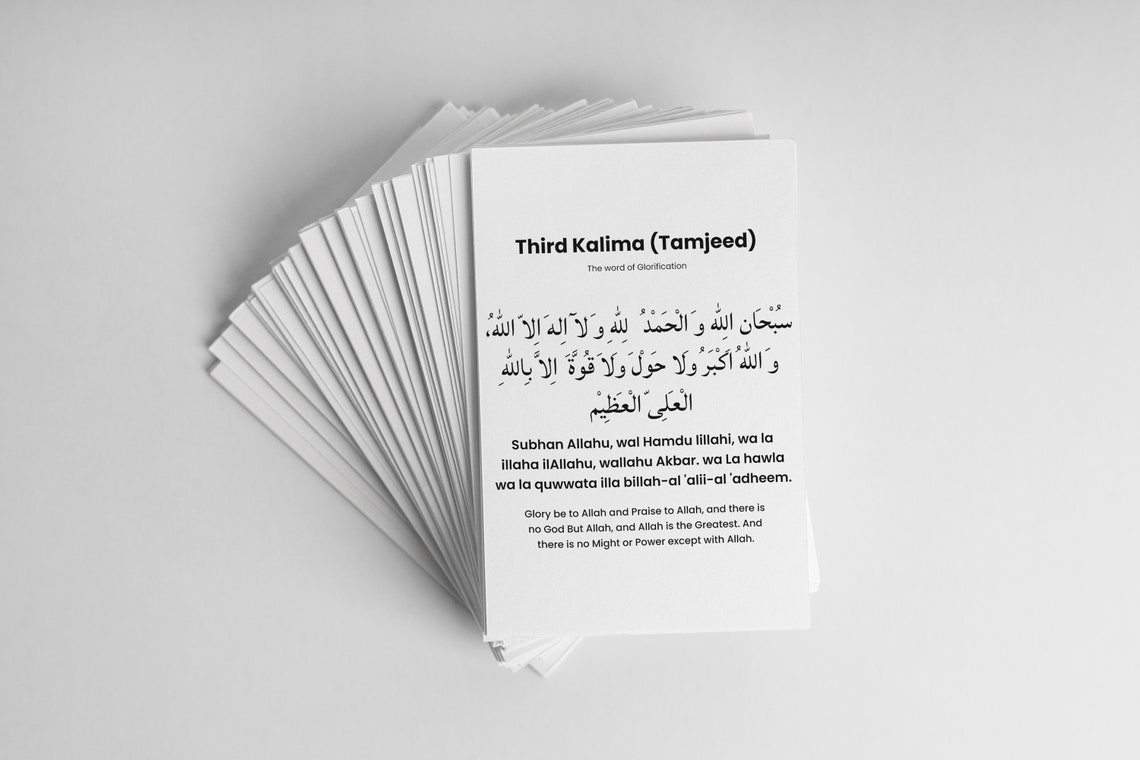 Third Kalima (Tamjeed)
The word of Glorification
سُبْحَان اللِه وَ الْحَمْدُ لِلّهِ وَ لآ اِلهَ اِلاّ اللّهُ،
وَ اللّهُ اَكْبَرُ وَلَا حَوْلَ وَلَا قُوَّةَ اِلاَّ بِاللّهِ
الْعَلِىّ الْعَظِيْم
Subhan Allahu, wal Hamdu lillahi, wa la
illaha ilAllahu, wallahu Akbar. wa La hawla
wa la quwwata illa billah-al 'alii-al 'adheem.
Glory be to Allah and Praise to Allah, and there is
no God But Allah, and Allah is the Greatest. And
there is no Might or Power except with Allah.